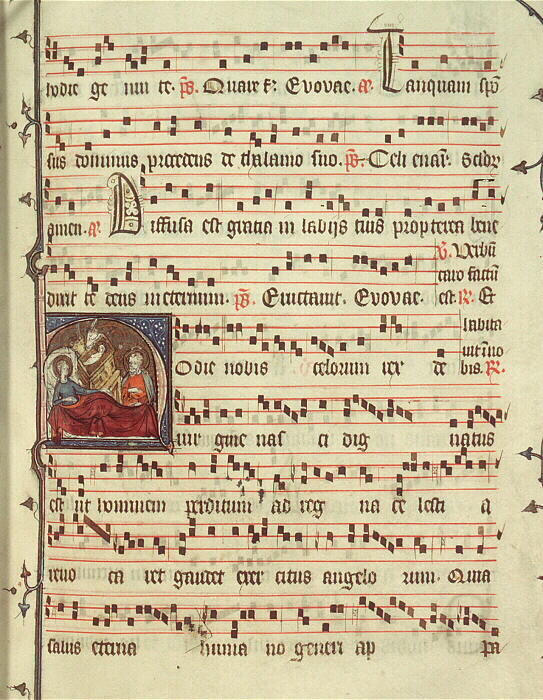 hodie ge nui te. ps. Quare f. Evovae. a. Tanquam spo
sus dominus procedens de thalamo suo. ps. Celi enar. Scdor
amen. a. Diffusa est gratia in labijs tuis propterea bene
dixit te deus in eternum. ps. Eructauit. Evovae.
V. Verbu
caro factu
est R. Et
habita
uit in no
bis. R.
Hodie nobis celorum rex de
uir gine nas ci dig natus
est ut hominem perditum ad reg na ce lesti a
reuo ca ret gaudet exer citus angelo rum. Quia
salus eterna huma no generi ap pa